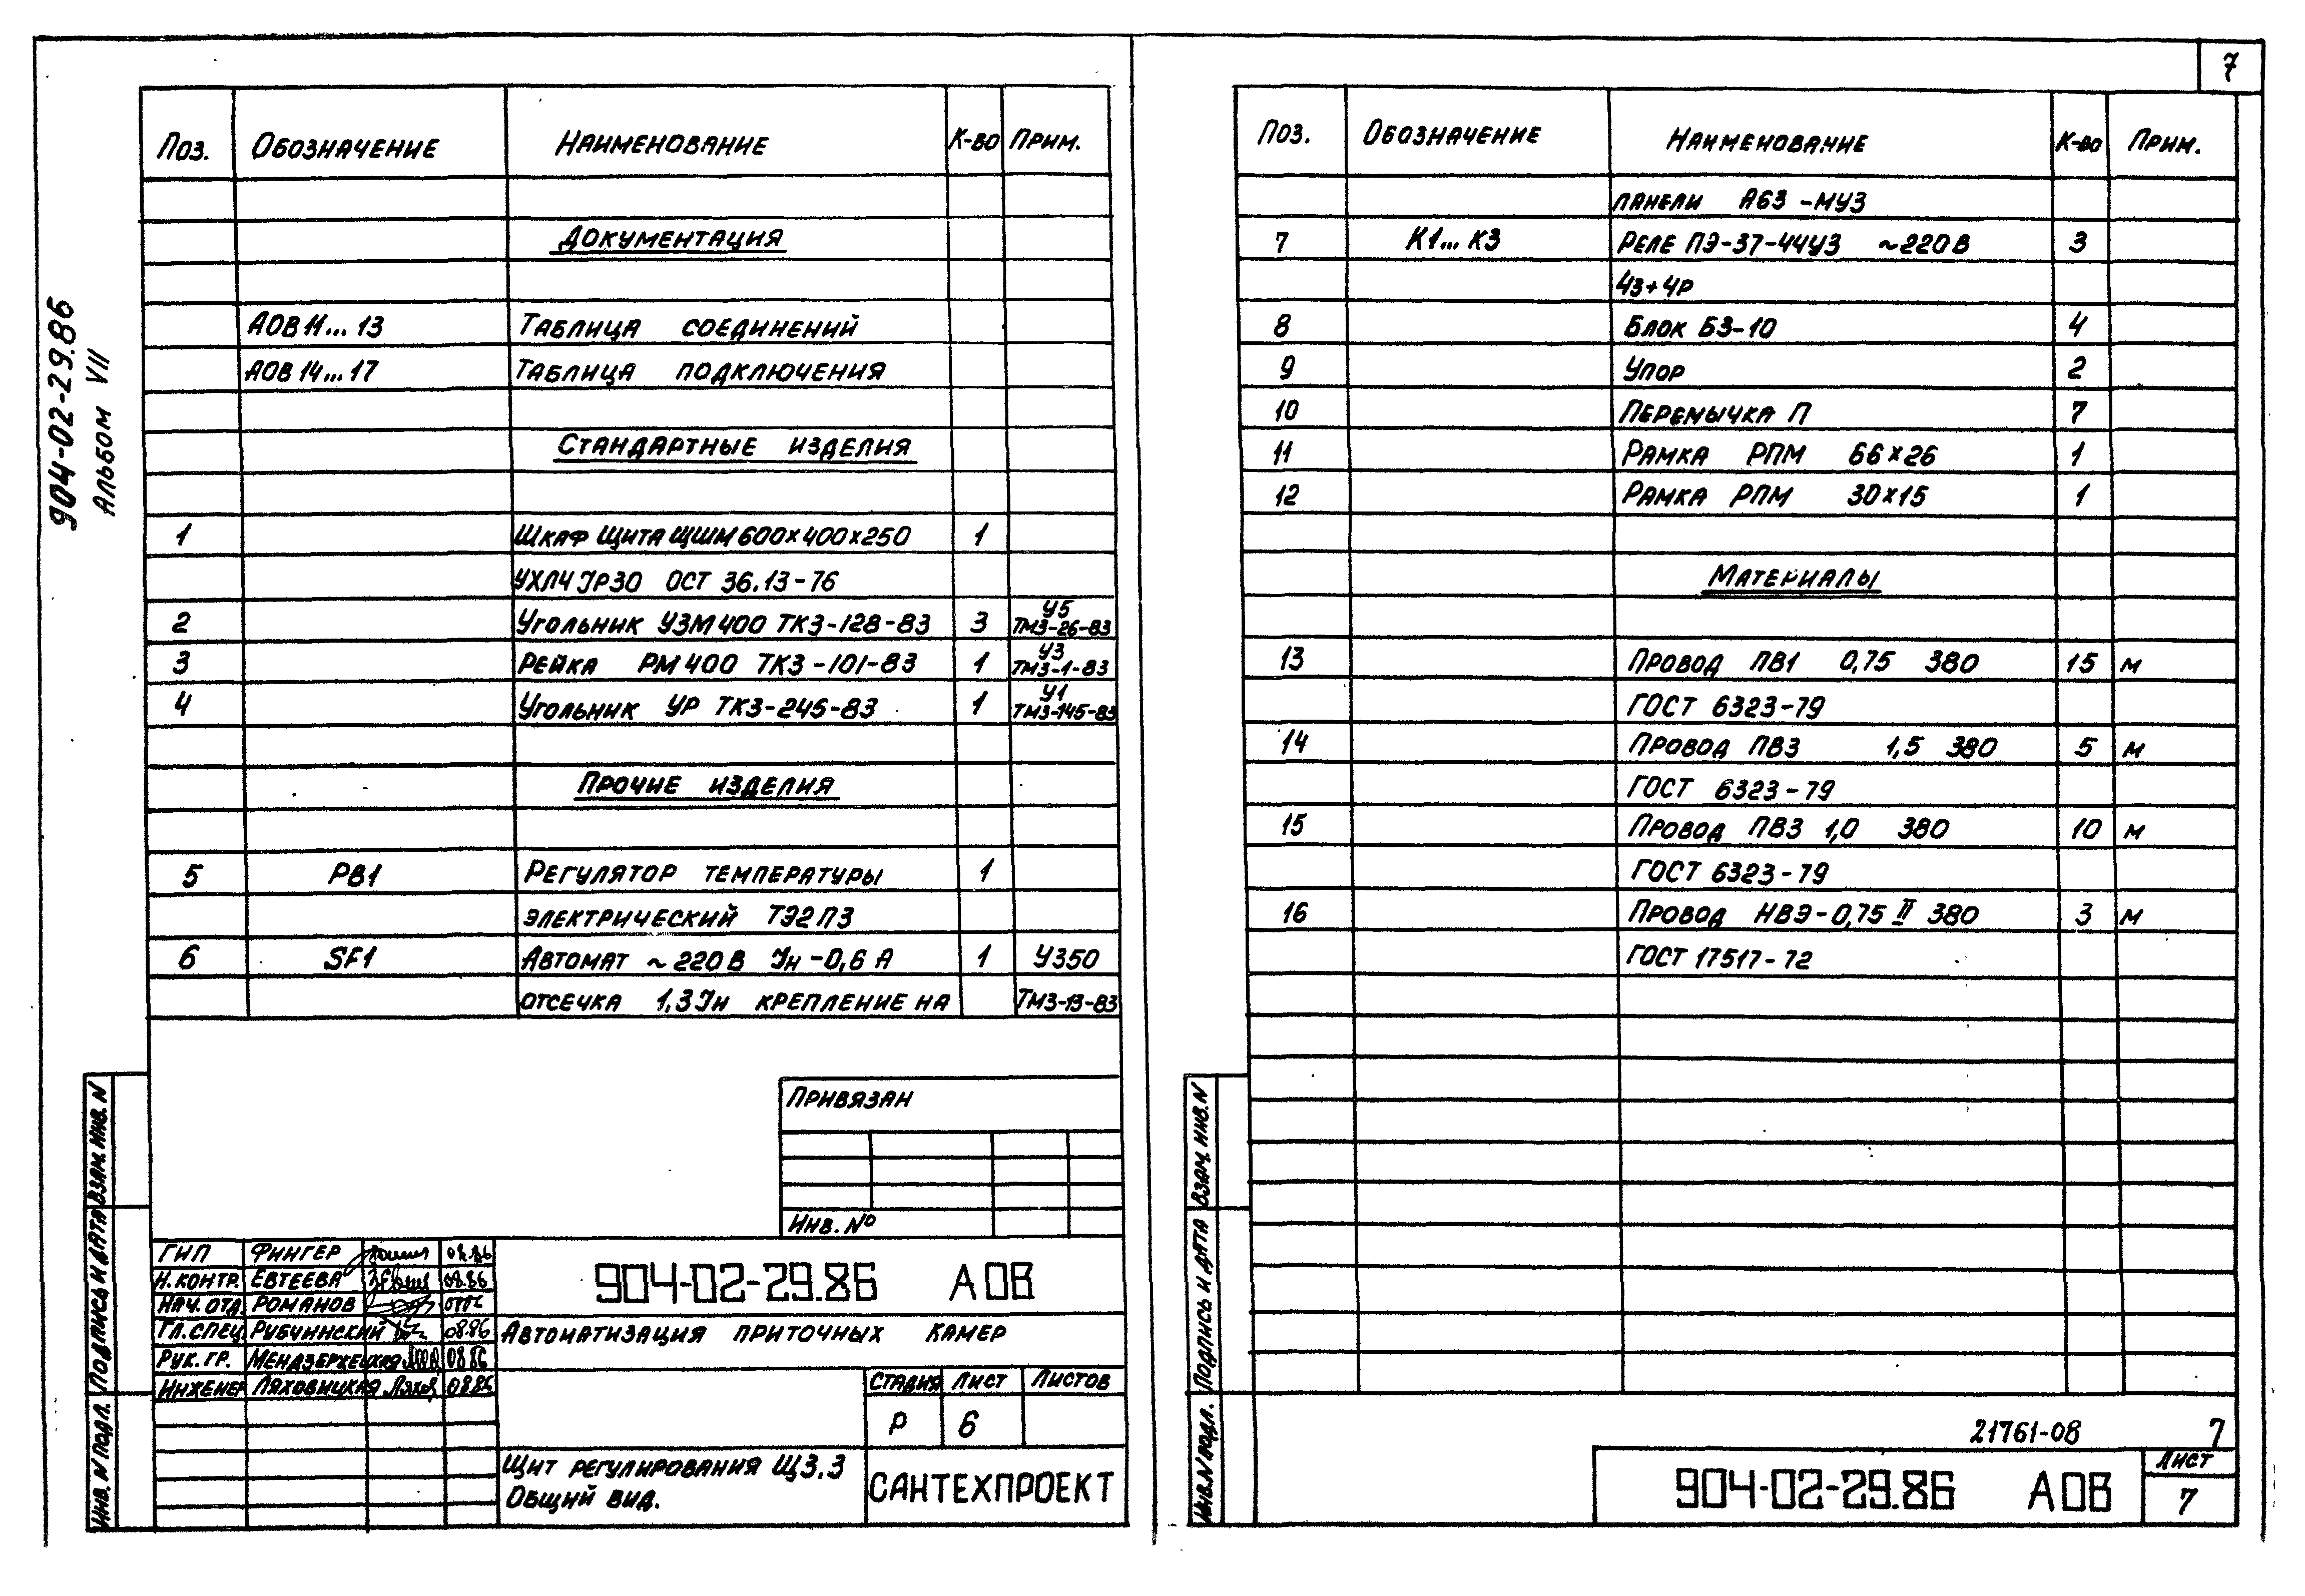 7
904-02-29.86
Альбом VII
Поз. Обозначение Наименование К-во Прим.
Документация
АОВ 11... 13 Таблица соединений
АОВ 14... 17 Таблица подключения
Стандартные изделия
1 Шкаф щита ЩШМ 600×400×250 1
УХЛ4 JР30 ОСТ 36.13-76
2 Угольник УЗМ 400 ТКЗ-128-83 3 У5 ТМЗ-26-83
3 Рейка РМ 400 ТКЗ-101-83 1 У3 ТМЗ-1-83
4 Угольник УР ТКЗ-245-83 1 У1 ТМЗ-145-83
Прочие изделия
5 РВ1 Регулятор температуры 1
электрический ТЭ2П3
6 SF1 Автомат ~220В Jн-0,6 А 1 У350
отсечка 1,3 Jн крепление на ТМЗ-13-83
Привязан
Инв. №
ГИП Фингер 08.86
Н.контр. Евтеева 08.86
Нач. отд. Романов
Гл. спец. Рубчинский 08.86
Рук. гр. Мендзержецкая 08.86
Инженер Ляховицкая 08.86
904-02-29.86 АОВ
Автоматизация приточных камер
Стадия Лист Листов
Р 6
Щит регулирования Щ3.3
Общий вид.
САНТЕХПРОЕКТ
Инв. N подл. Подпись и дата Взам. инв. N
Поз. Обозначение Наименование К-во Прим.
панели А63-МУ3
7 К1... К3 Реле ПЭ-37-44У3 ~220В 3
4з+4р
8 Блок БЗ-10 4
9 Упор 2
10 Перемычка П 7
11 Рамка РПМ 66×26 1
12 Рамка РПМ 30×15 1
Материалы
13 Провод ПВ1 0,75 380 15 м
ГОСТ 6323-79
14 Провод ПВ3 1,5 380 5 м
ГОСТ 6323-79
15 Провод ПВ3 1,0 380 10 м
ГОСТ 6323-79
16 Провод НВЭ-0,75 II 380 3 м
ГОСТ 17517-72
Инв. N подл. Подпись и дата Взам. инв. N
21761-08 7
904-02-29.86 АОВ
Лист
7